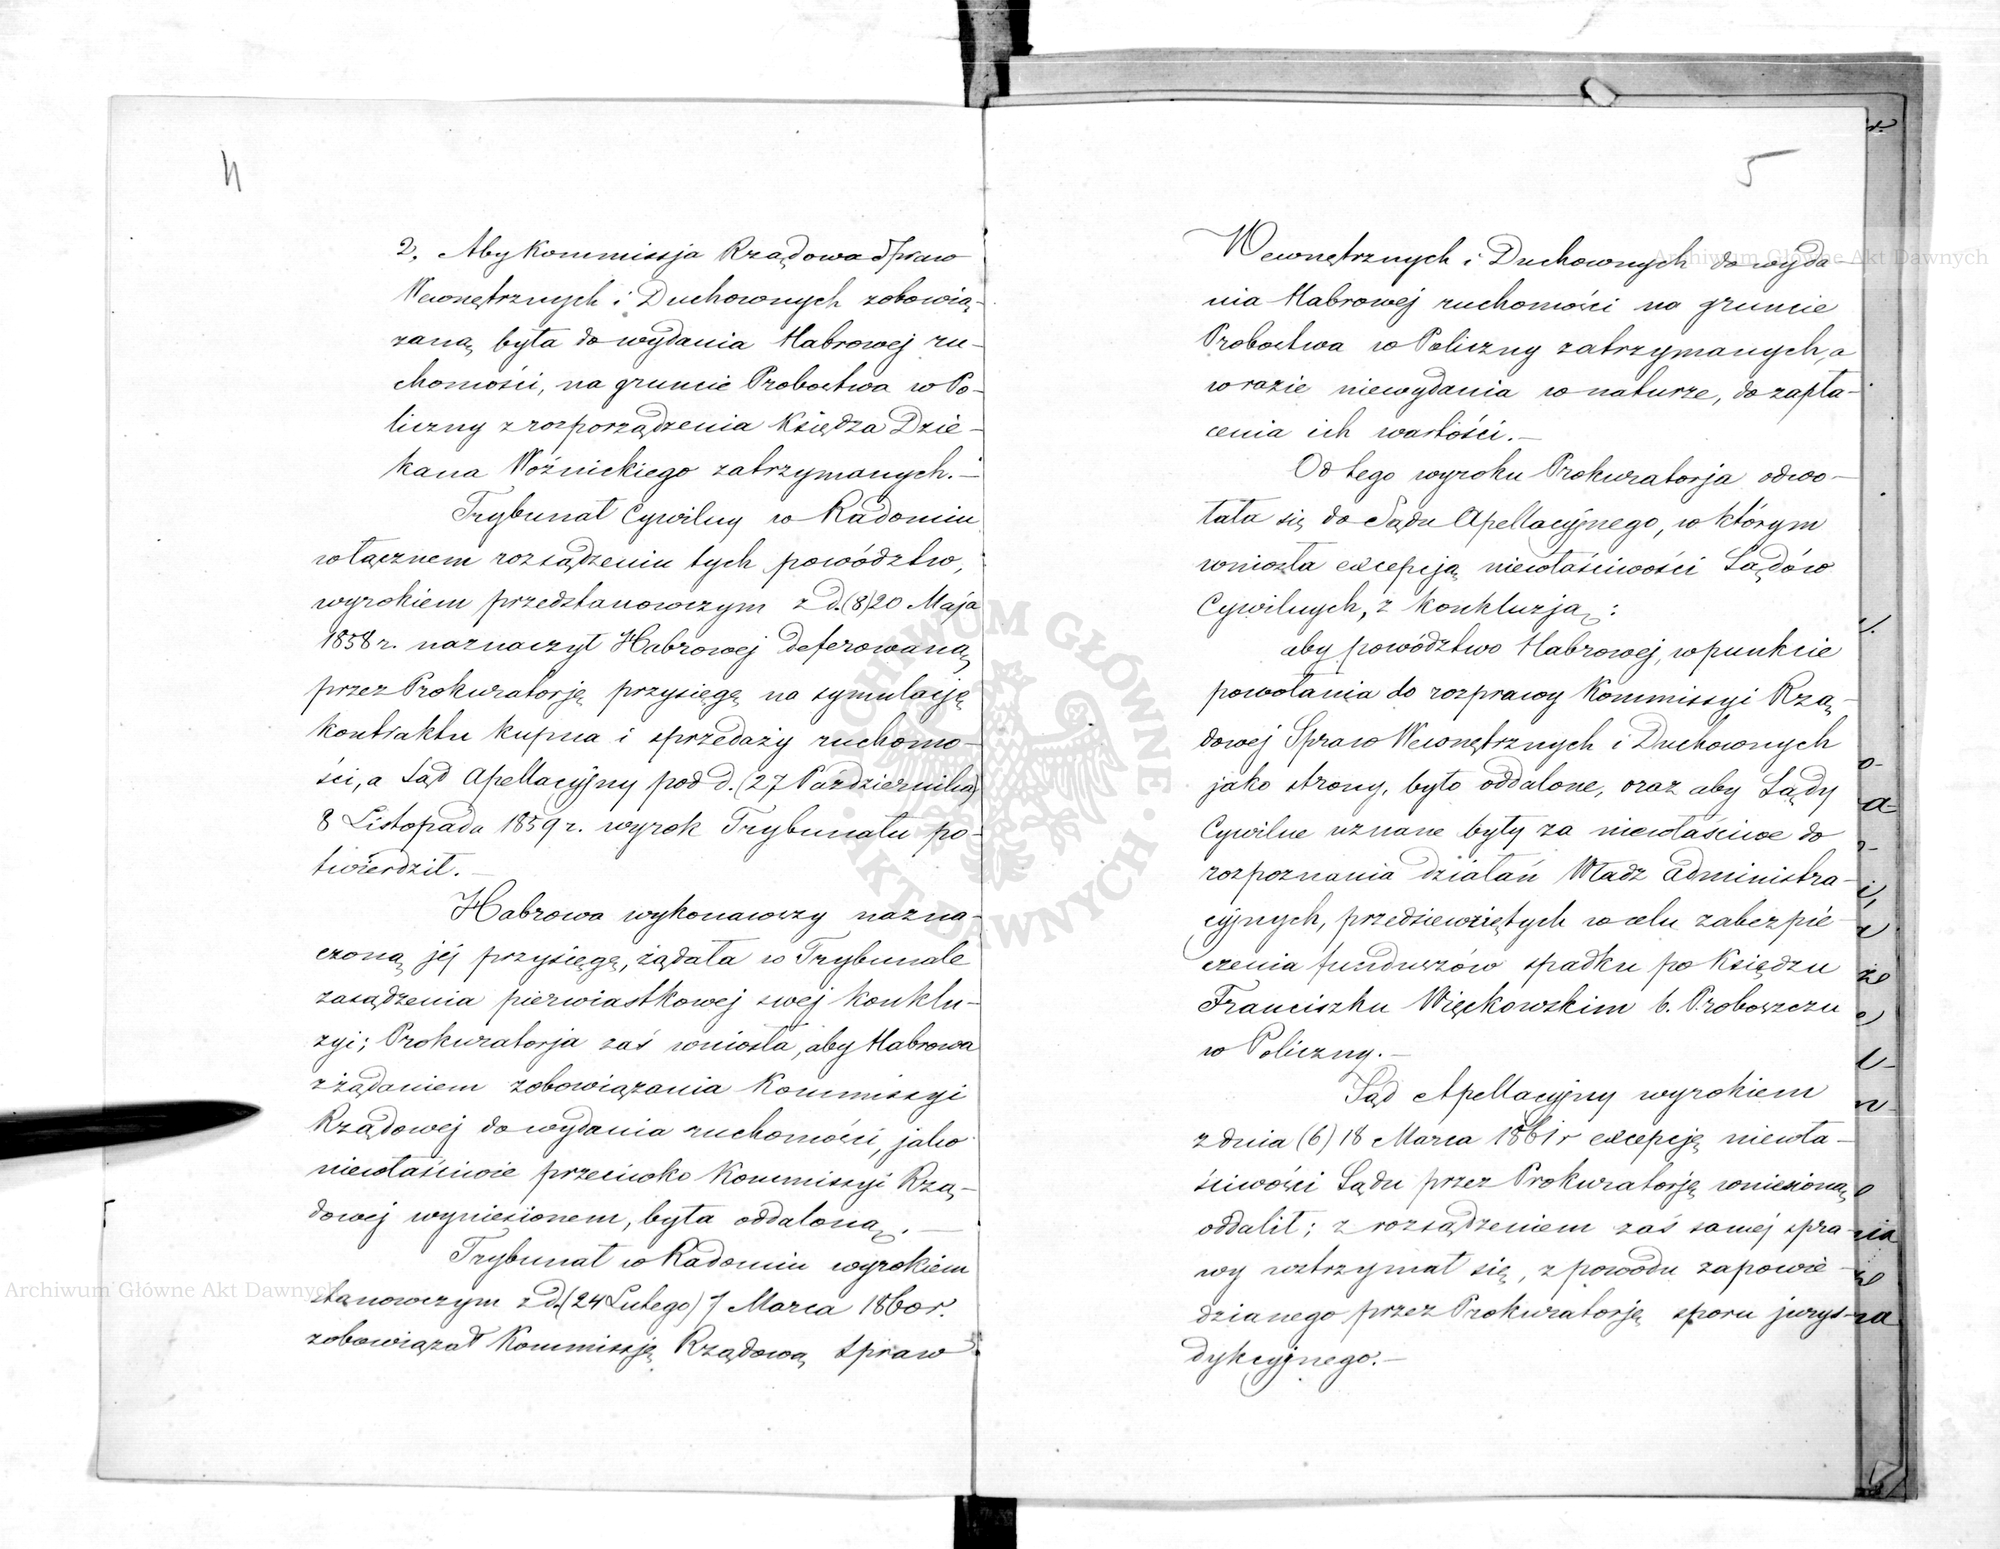 4
2. Aby Kommissja Rządowa Spraw
Wewnętrznych i Duchownych zobowią-
zaną była do wydania Habrowej ru-
chomości, na gruncie Probostwa w Po-
liczny z rozporządzenia Księdza Dzie-
kana Woźnickiego zatrzymanych.—
Trybunał Cywilny w Radomiu
w łącznem rozsądzeniu tych powództw,
wyrokiem przedstanowczym z d. (8) 20 Maja
1858 r. naznaczył Habrowej deferowaną
przez Prokuratorję przysięgę na symulację
kontraktu kupna i sprzedaży ruchomo-
ści, a Sąd Apellacyjny pod d. (27 Października)
8 Listopada 1859 r. wyrok Trybunału po-
twierdził.—
Habrowa wykonawszy nazna-
czoną jéj przysięgę, żądała w Trybunale
zasądzenia pierwiastkowej swej konklu-
zyi; Prokuratorja zaś wniosła, aby Habrowa
z żądaniem zobowiązania Kommissyi
Rządowej do wydania ruchomości, jako
niewłaściwie przeciwko Kommissyi Rzą-
dowej wyniesionem, była oddaloną.—
Trybunał w Radomiu wyrokiem
stanowczym z d. (24 Lutego) 7 Marca 1860 r.
zobowiązał Kommissję Rządową Spraw
5
Wewnętrznych i Duchownych do wyda-
nia Habrowej ruchomości na gruncie
Probostwa w Policzny zatrzymanych, a
w razie niewydania w naturze, do zapła-
cenia ich wartości.—
Od tego wyroku Prokuratorja odwo-
łała się do Sądu Apellacyjnego, w którym
wniosła excepcją niewłaściwości Sądów
Cywilnych, z konkluzją:
aby powództwo Habrowej, w punkcie
powołania do rozprawy Kommissyi Rzą-
dowej Spraw Wewnętrznych i Duchownych
jako strony, było oddalone, oraz aby Sądy
Cywilne uznane były za niewłaściwe do
rozpoznania działań Władz Administra-
cyjnych, przedsiewziętych w celu zabezpie-
czenia funduszów spadku po Księdzu
Franciszku Więckowskim b. Proboszczu
w Policzny.—
Sąd Apellacyjny wyrokiem
z dnia (6) 18 Marca 1861 r excepcję niewła-
ściwości Sądu przez Prokuratorję wniesioną
oddalił; z rozsądzeniem zaś samej spra-
wy wstrzymał się, z powodu zapowie-
dzianego przez Prokuratorję sporu jurys-
dykcyjnego.—
Archiwum Główne Akt Dawnych
Archiwum Główne Akt Dawnych
ARCHIWUM GŁÓWNE
AKT DAWNYCH